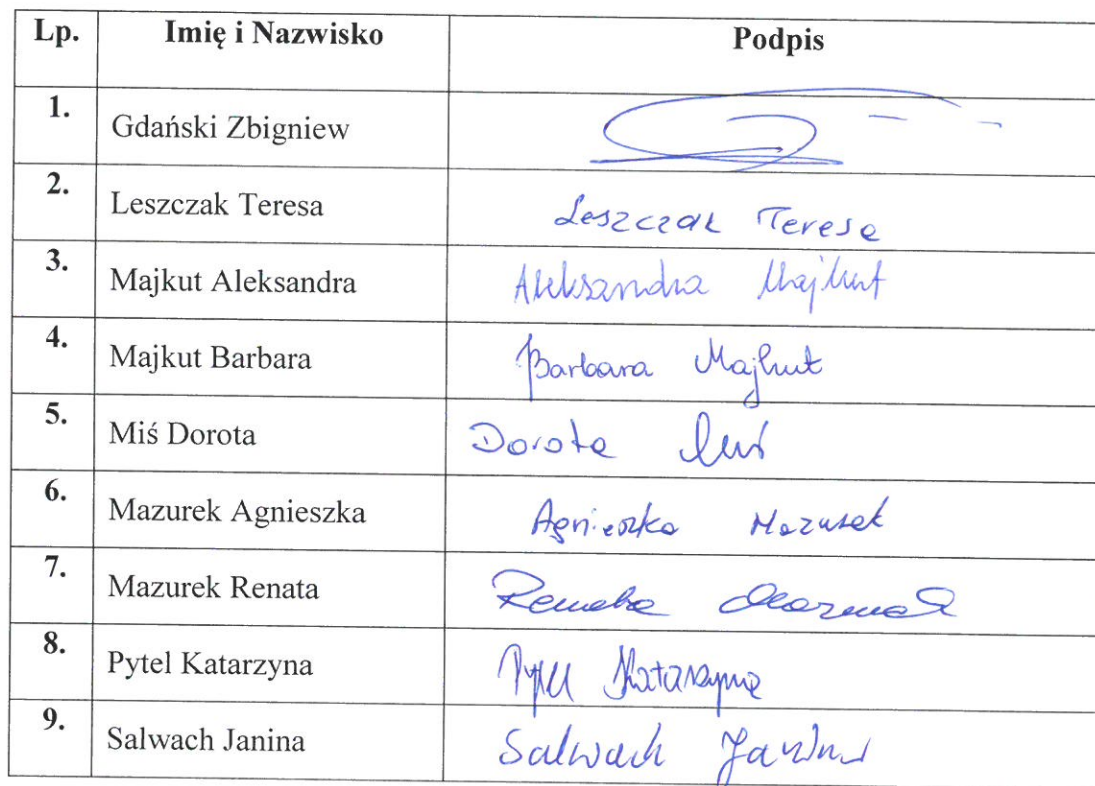 Lp. Imię i Nazwisko Podpis
1. Gdański Zbigniew
2. Leszczak Teresa Leszczak Teresa
3. Majkut Aleksandra Aleksandra Majkut
4. Majkut Barbara Barbara Majkut
5. Miś Dorota Dorota Miś
6. Mazurek Agnieszka Agnieszka Mazurek
7. Mazurek Renata Renata Mazurek
8. Pytel Katarzyna Pytel Katarzyna
9. Salwach Janina Salwach Janina